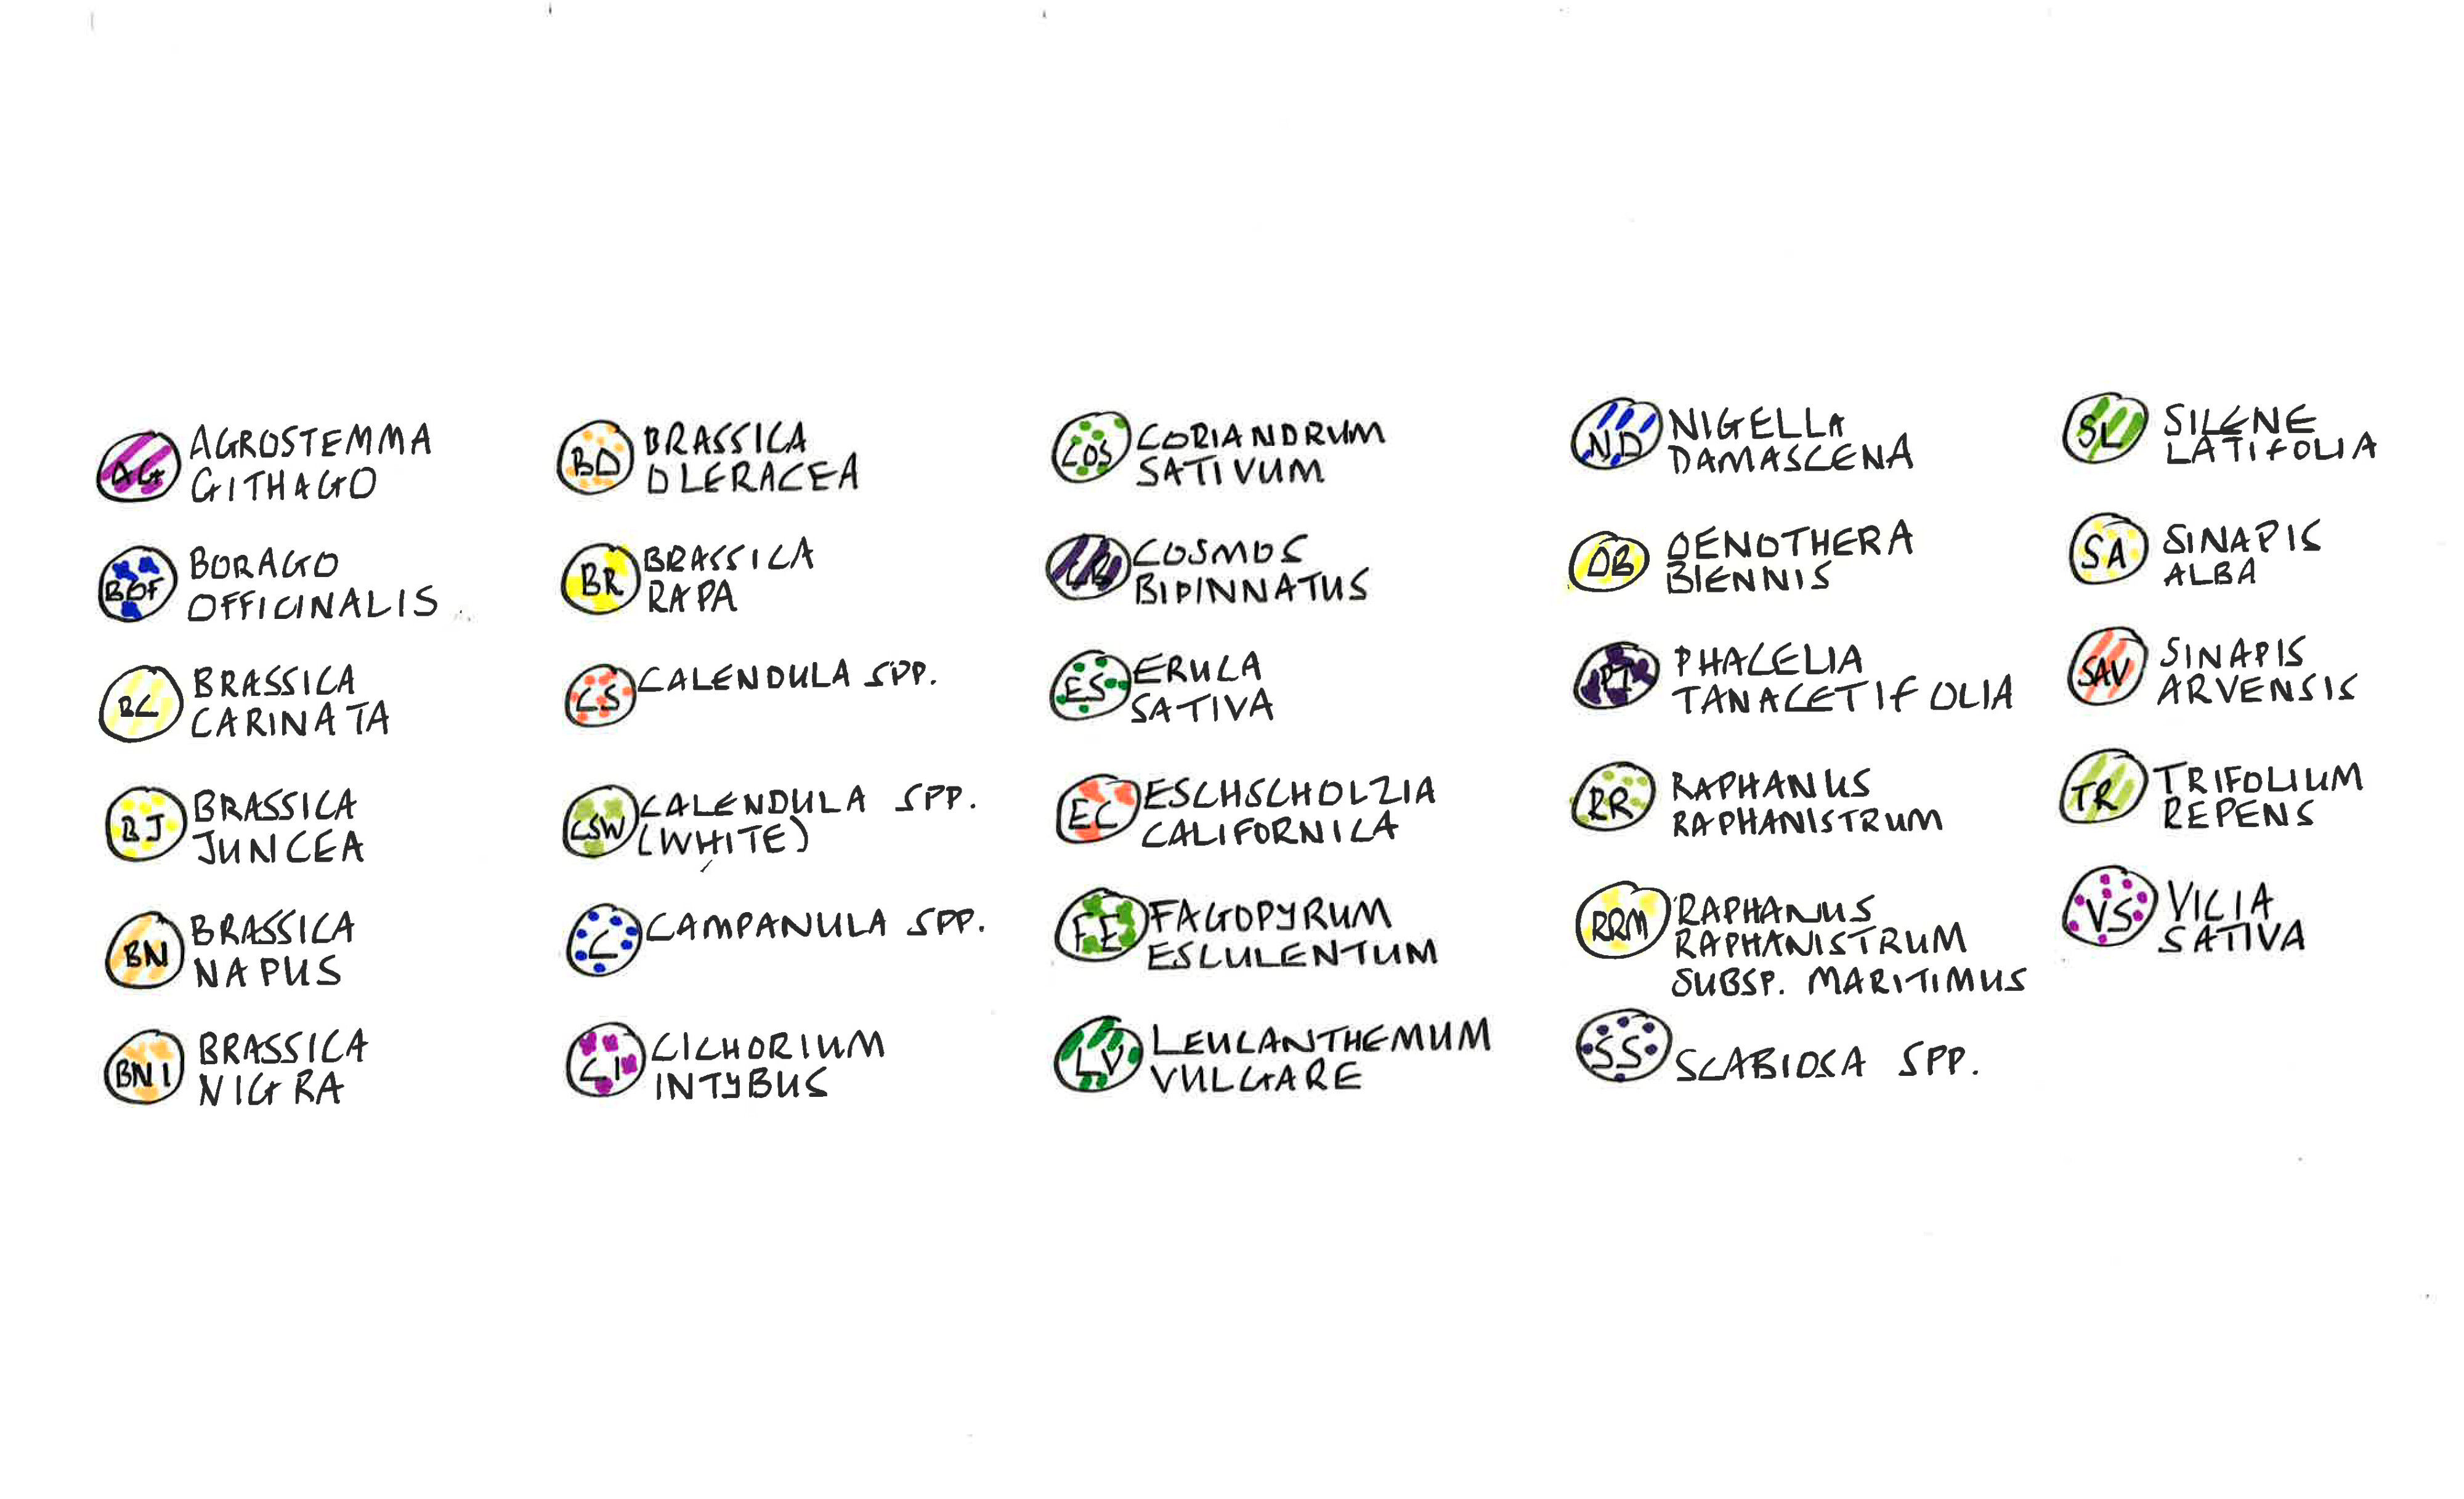 AG AGROSTEMMA
GITHAGO
BOF BORAGO
OFFICINALIS
BC BRASSICA
CARINATA
BJ BRASSICA
JUNCEA
BN BRASSICA
NAPUS
BNI BRASSICA
NIGRA
BO BRASSICA
OLERACEA
BR BRASSICA
RAPA
CS CALENDULA SPP.
CSW CALENDULA SPP.
(WHITE)
C CAMPANULA SPP.
CI CICHORIUM
INTYBUS
COS CORIANDRUM
SATIVUM
CB COSMOS
BIPINNATUS
ES ERUCA
SATIVA
EC ESCHSCHOLZIA
CALIFORNICA
FE FAGOPYRUM
ESCULENTUM
LV LEUCANTHEMUM
VULGARE
ND NIGELLA
DAMASCENA
OB OENOTHERA
BIENNIS
PT PHACELIA
TANACETIFOLIA
RR RAPHANUS
RAPHANISTRUM
RRM RAPHANUS
RAPHANISTRUM
SUBSP. MARITIMUS
SS SCABIOSA SPP.
SL SILENE
LATIFOLIA
SA SINAPIS
ALBA
SAV SINAPIS
ARVENSIS
TR TRIFOLIUM
REPENS
VS VICIA
SATIVA